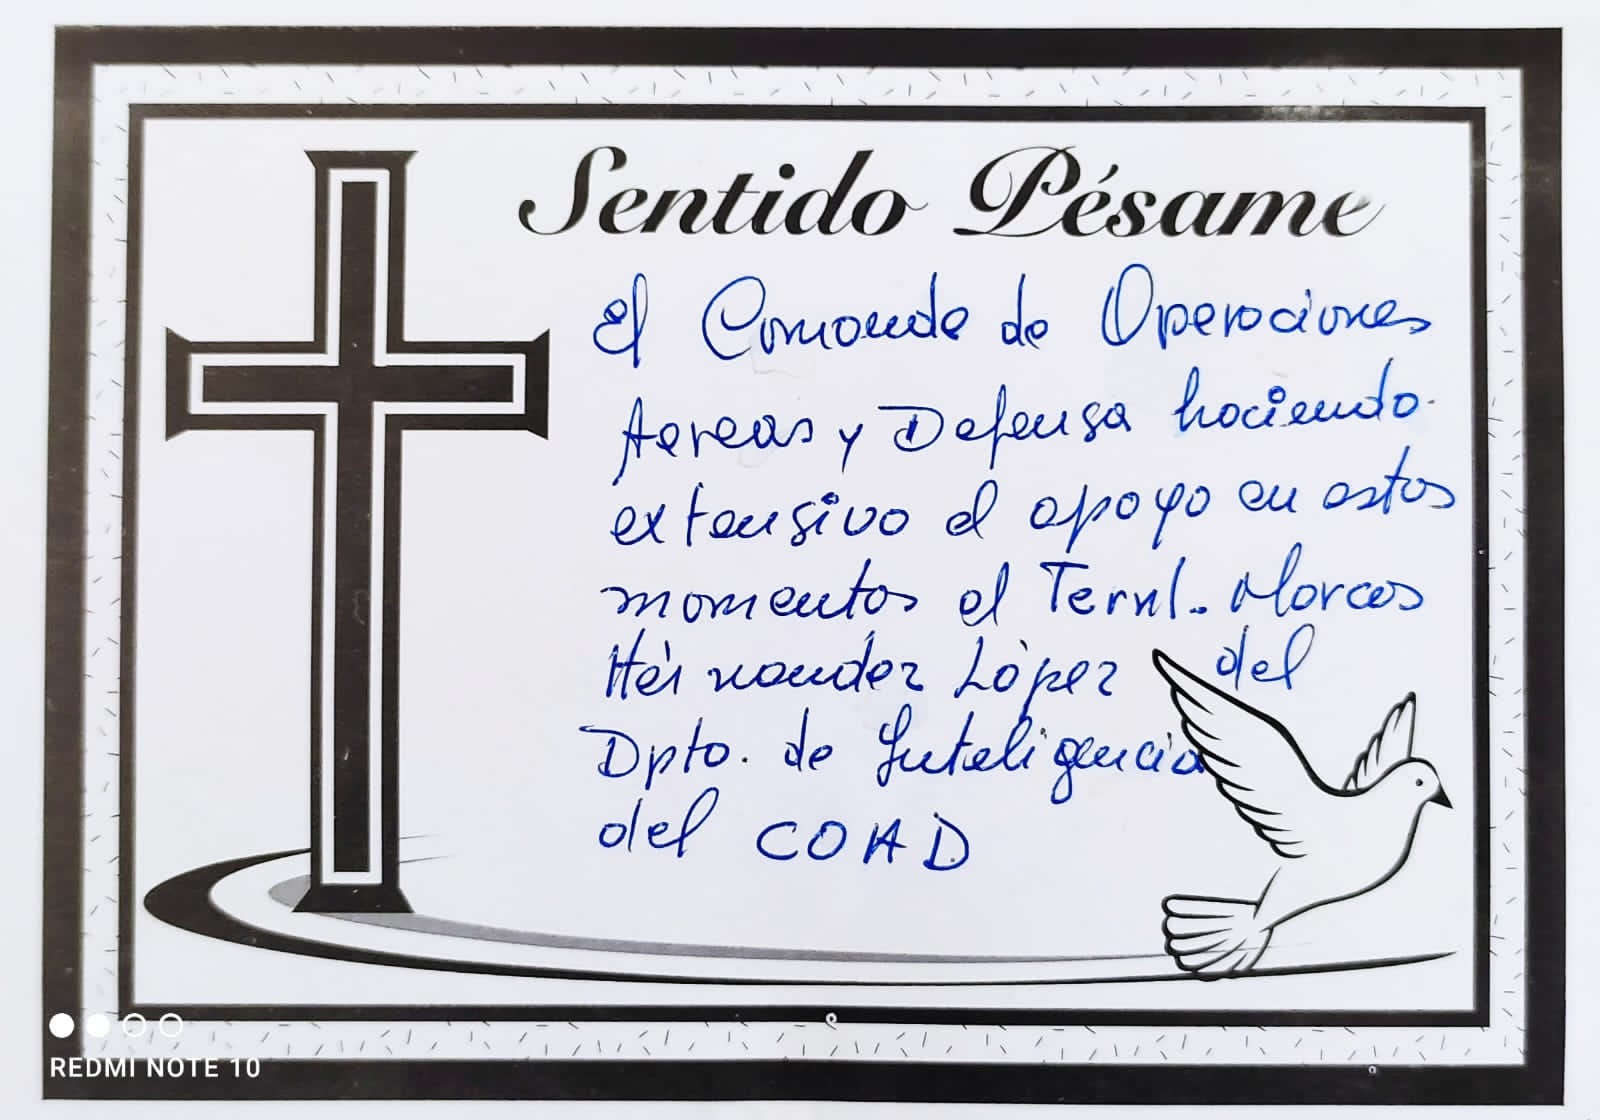 Sentido Pésame
El Comando de Operaciones
Aereas y Defensa haciendo
extensivo el apoyo en estos
momentos al Ternl. Marcos
Hernandez López del
Dpto. de Inteligencia
del COAD
REDMI NOTE 10